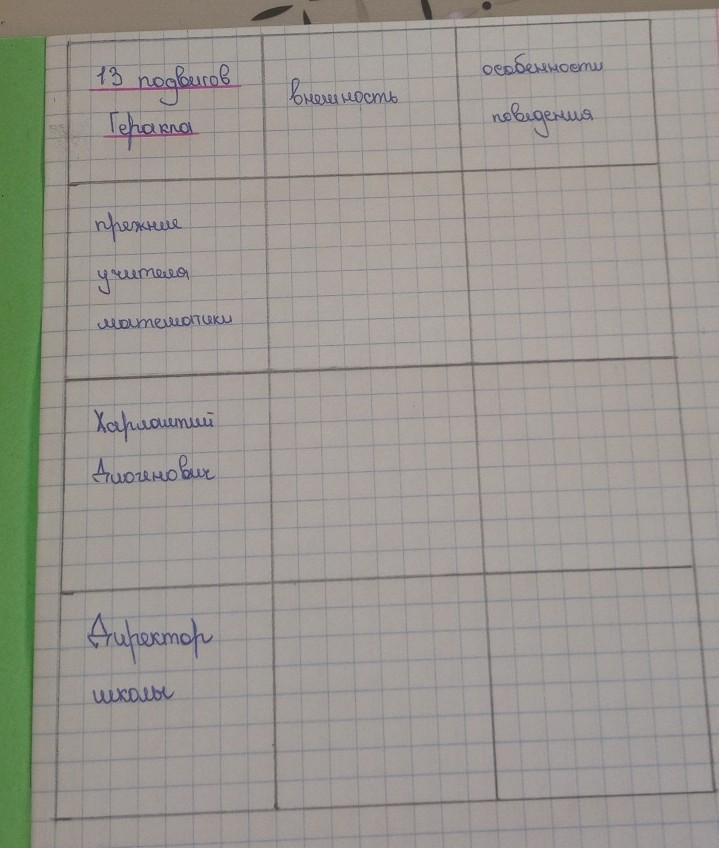 13 подвигов
Геракла
внешность
особенности
поведения
прежние
учителя
математики
Харлампий
Диогенович
Директор
школы